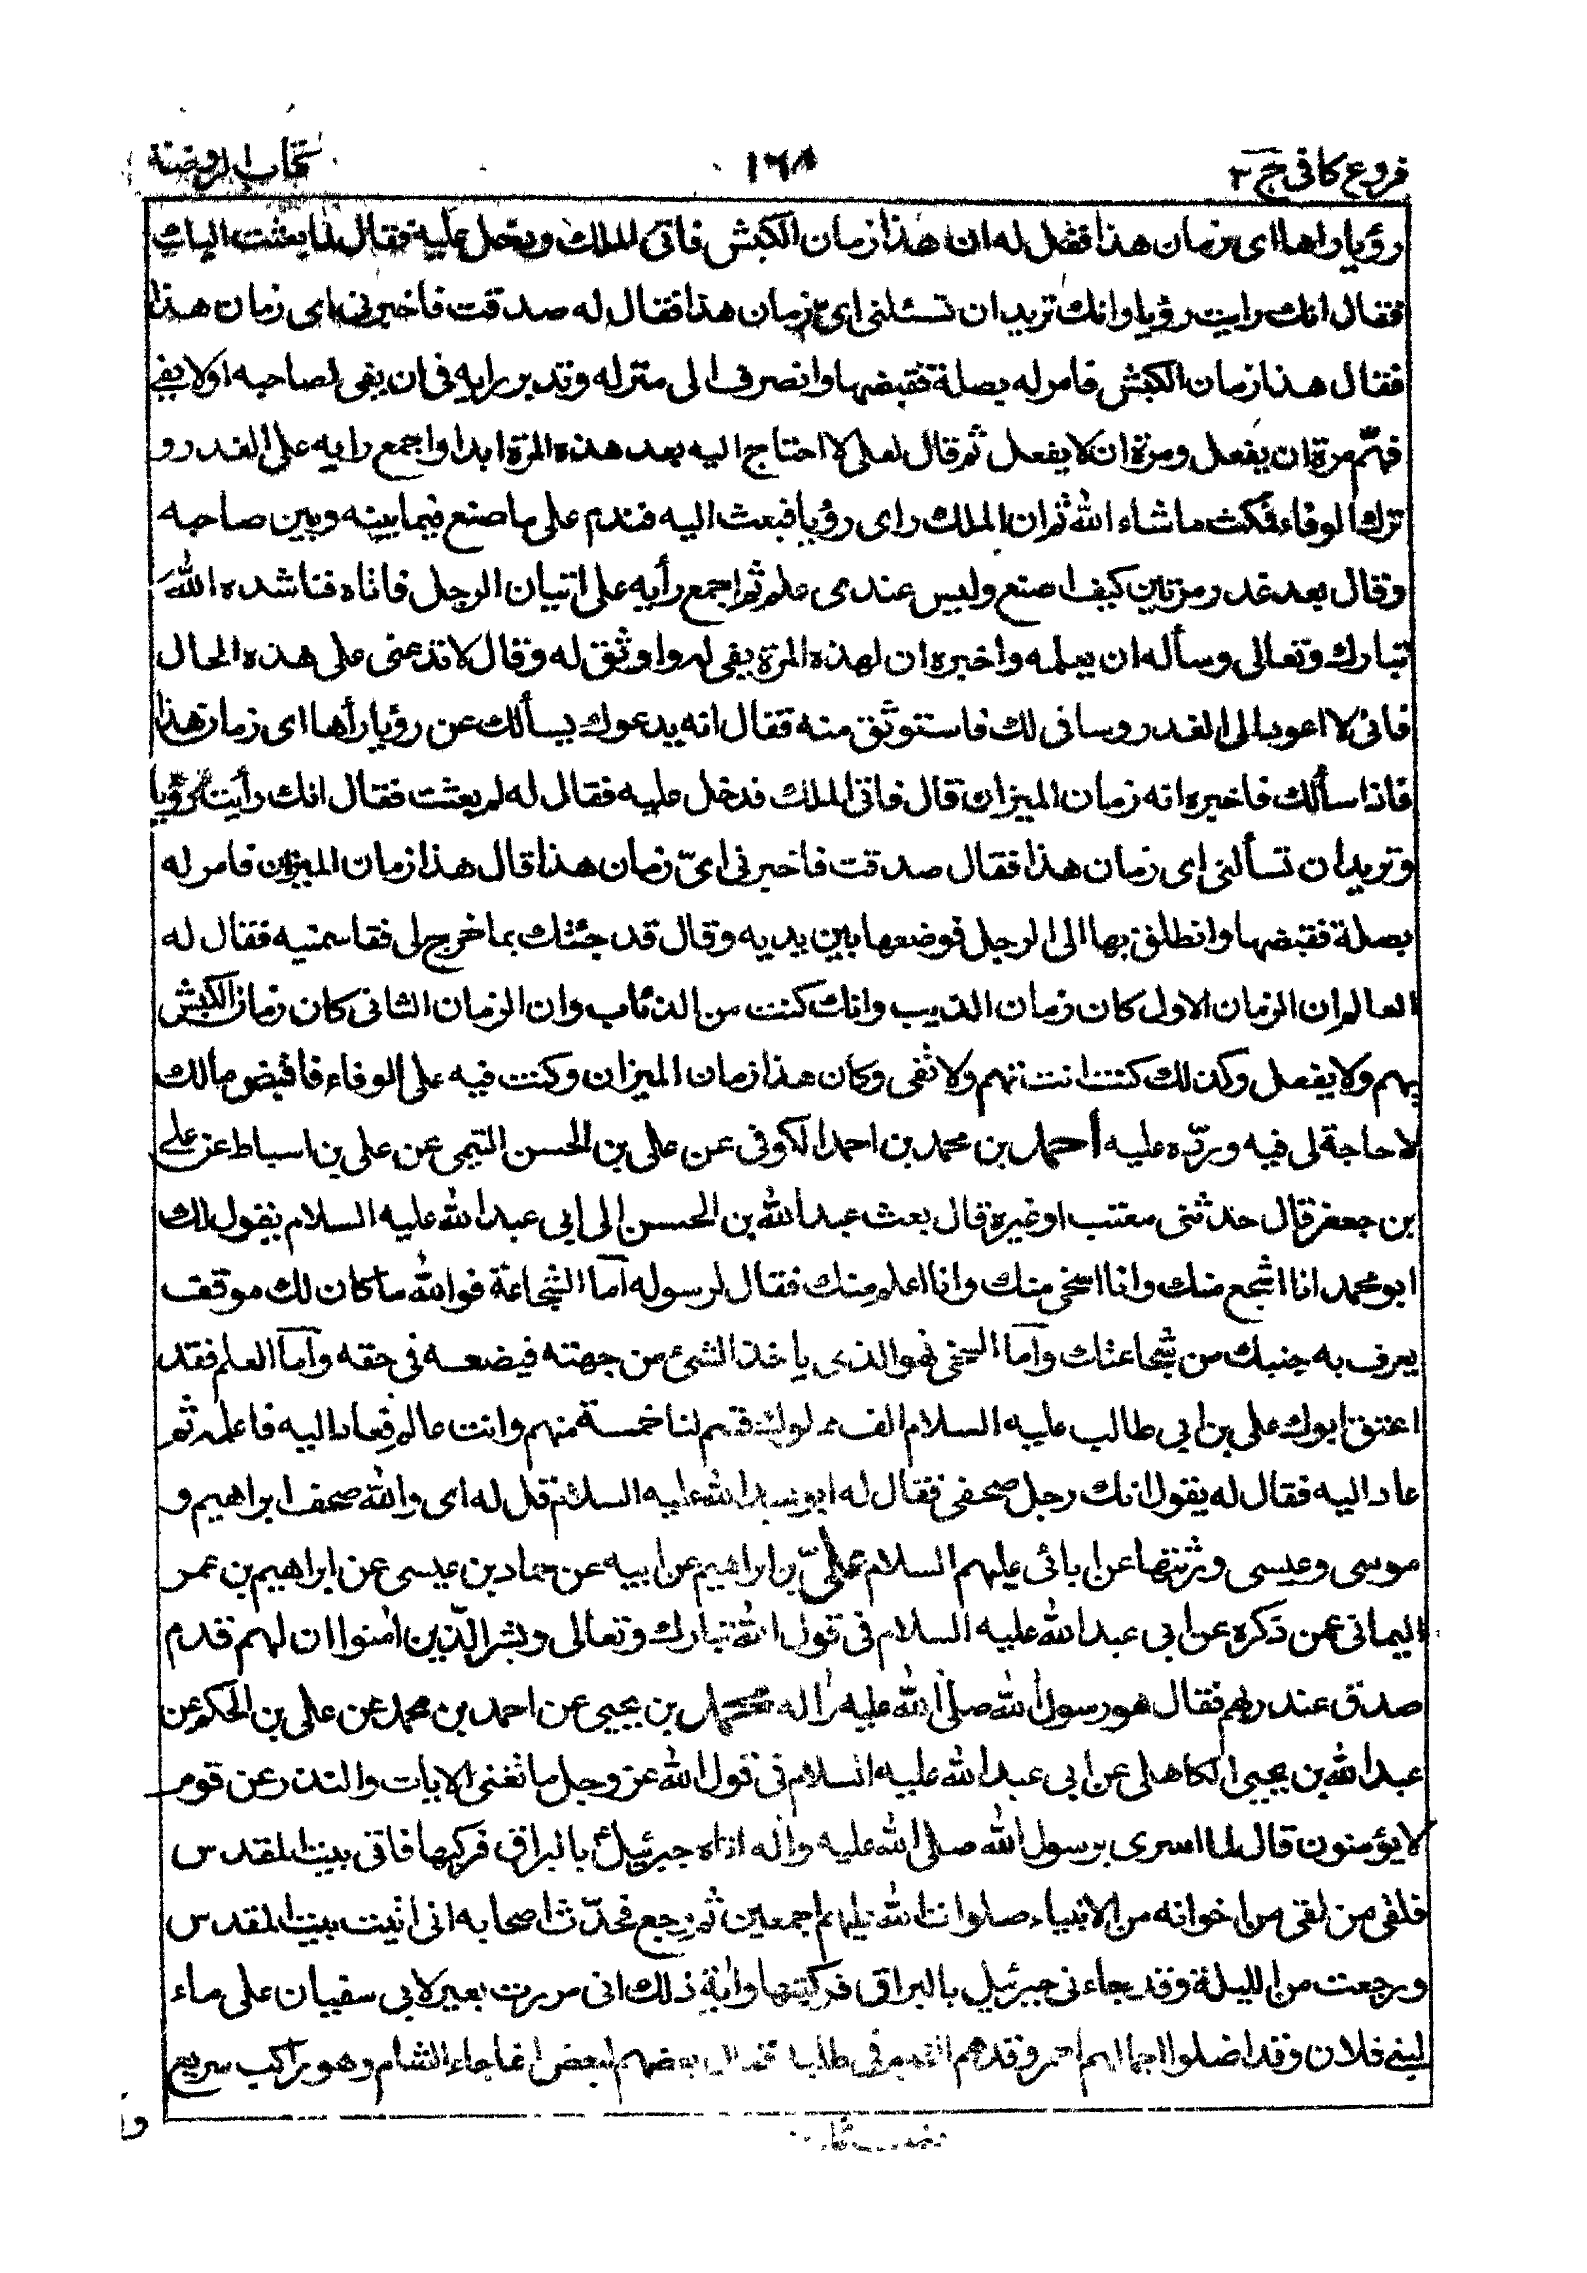 فروع كافى ج ٣
١٦٨
كتاب الروضة
رؤيا راها اى زمان هذا فقل له ان هذا زمان الكبش فاتى الملك ودخل عليه فقال لما بعثت اليك
فقال انك رايت رؤيا وانك تريد ان تسئلنى اىّ زمان هذا فقال له صدقت فاخبرنى اى زمان هذا
فقال هذا زمان الكبش فامر له بصلة فقبضها وانصرف الى منزله وتدبر رايه فى ان يفى لصاحبه اولا يفى
فهمّ مرة ان يفعل ومرة ان لا يفعل ثم قال لعلى لا احتاج اليه بعد هذه المرة ابدا واجمع رايه على الغدر و
ترك الوفاء فمكث ما شاء الله ثم ان الملك راى رؤيا فبعث اليه فندم على ما صنع فيما بينه وبين صاحبه
وقال بعد غدر مرتين كيف اصنع وليس عندى علم ثم اجمع رأيه على اتيان الرجل فاتاه فناشده الله
تبارك وتعالى وسأله ان يعلمه واخبره ان لهذه المرة يفى له واوثق له وقال لا تدعنى على هذه الحال
فانى لا اعود الى الغدر وسافى لك فاستوثق منه فقال انه يدعوك يسألك عن رؤيا رأها اى زمان هذا
فاذا سألك فاخبره انه زمان الميزان قال فاتى الملك فدخل عليه فقال له لم بعثت فقال انك رأيت رؤيا
وتريد ان تسألنى اى زمان هذا فقال صدقت فاخبرنى اىّ زمان هذا قال هذا زمان الميزان فامر له
بصلة فقبضها وانطلق بها الى الرجل فوضعها بين يديه وقال قد جئتك بما خرج لى فقاسمنيه فقال له
العالم ان الزمان الاول كان زمان الذيب وانك كنت من الذئاب وان الزمان الثانى كان زمان الكبش
يهم ولا يفعل وكذلك كنت انت تهم ولا تفى وكان هذا زمان الميزان وكنت فيه على الوفاء فاقبض مالك
لا حاجة لى فيه وردّه عليه أحمد بن محمد بن احمد الكوفى عن على بن الحسن التيمى عن على بن اسباط عن على
بن جعفر قال حدثنى معتب او غيره قال بعث عبد الله بن الحسن الى ابى عبد الله عليه السلام يقول لك
ابو محمد انا اشجع منك وانا اسخى منك وانا اعلم منك فقال لرسوله اما الشجاعة فوالله ما كان لك موقف
يعرف به جنبك من شجاعتك واما السخى فهو الذى ياخذ الشئ من جهته فيضعه فى حقه واما العلم فقد
اعتق ابوك على بن ابى طالب عليه السلام الف مملوك فسم لنا خمسة منهم وانت عالم فعاد اليه فاعلمه ثم
عاد اليه فقال له يقول انك رجل صحفى فقال له ابو عبد الله عليه السلام قل له اى والله صحف ابراهيم و
موسى وعيسى ورثتها عن ابائى عليهم السلام علىّ بن ابراهيم عن ابيه عن حماد بن عيسى عن ابراهيم بن عمر
اليمانى عمن ذكره عن ابى عبد الله عليه السلام فى قول الله تبارك وتعالى وبشر الذين امنوا ان لهم قدم
صدق عند ربهم فقال هو رسول الله صلى الله عليه واله محمد بن يحيى عن احمد بن محمد عن على بن الحكم عن
عبد الله بن يحيى الكاهلى عن ابى عبد الله عليه السلام فى قول الله عز وجل ما تغنى الايات والنذر عن قوم
لا يؤمنون قال لما اسرى برسول الله صلى الله عليه واله اتاه جبرئيل بالبراق فركبها فاتى بيت المقدس
فلقى من لقى من اخوانه من الانبياء صلوات الله عليهم اجمعين ثم رجع فحدّث اصحابه انى اتيت بيت المقدس
ورجعت من الليلة وقد جاءنى جبرئيل بالبراق فركبتها واية ذلك انى مررت بعير لابى سفيان على ماء
لبنى فلان وقد اضلوا جمالهم احمر وقد هم القوم فى طلبه فقال بعضهم لبعض انما جاء الشام وهو راكب سريع